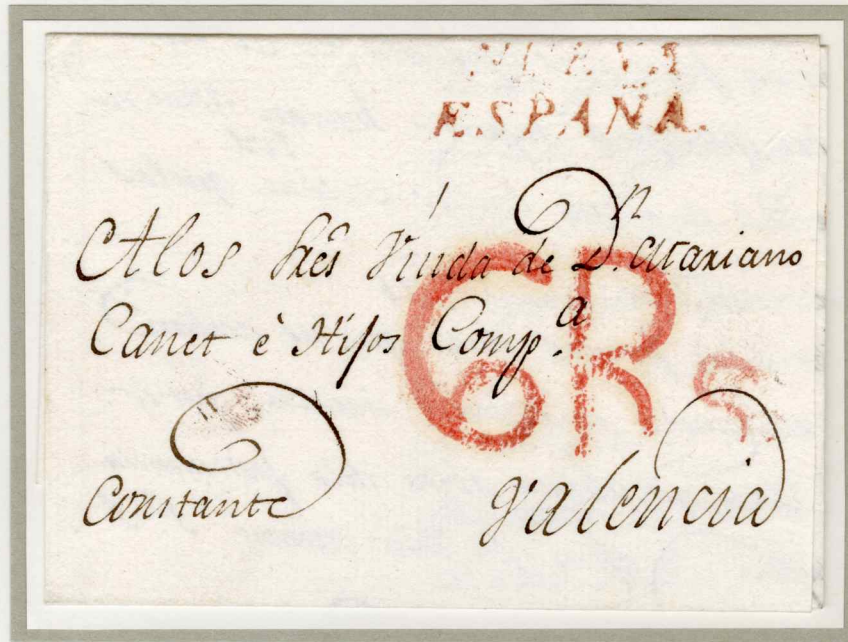 NUEVA
ESPAÑA.
A los Sres Viuda de Dn. Mariano
Canet è Hijos Comp.a
6Rs
Constante Valencia